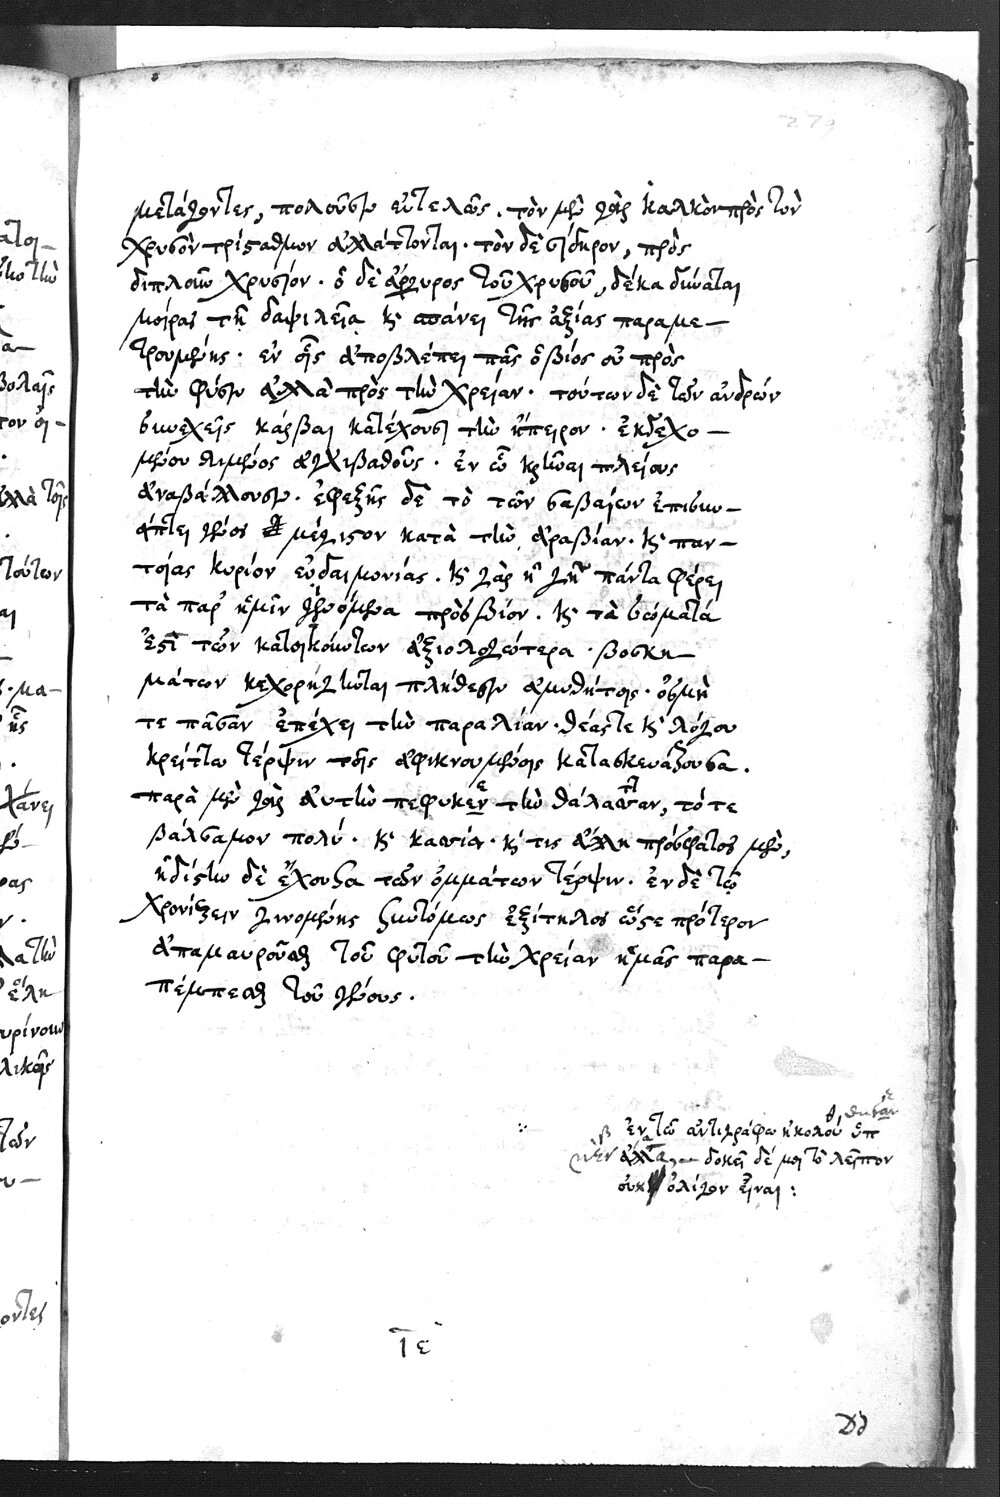 μετάγοντες, πολοῦσιν εὐτελῶς. τὸν μὲν γὰρ χαλκὸν πρὸς τὸν
χρυσὸν τρίσταθμον ἀλλάττονται. τὸν δὲ σίδηρον, πρὸς
διπλοῦν χρυσίον. ὁ δὲ ἄργυρος τοῦ χρυσοῦ, δέκα δύναται
μοίρας τῇ δαψιλείᾳ καὶ σπάνει τῆς ἀξίας παραμε-
τρουμένης. ἐν οἷς ἀποβλέπει πᾶς ὁ βίος οὐ πρὸς
τὴν φύσιν ἀλλὰ πρὸς τὴν χρείαν. τούτων δὲ τῶν ἀνδρῶν
συνεχεῖς κάρβαι κατέχουσι τὴν ἤπειρον. ἐκδεχο-
μένου λιμένος ἀγχιβαθοῦς. ἐν ᾧ κρῆναι πλείους
ἀναβάλλουσιν. ἐφεξῆς δὲ τὸ τῶν σαβαίων ἐπισυν-
άπτει γένος μέγιστον κατὰ τὴν ἀραβίαν. καὶ παν-
τοίας κυρίον εὐδαιμονίας. καὶ γὰρ ἡ γῆ πάντα φέρει
τὰ παρ' ἡμῖν γενόμενα πρὸς βίον. καὶ τὰ σώματά
ἐστι τῶν κατοικούντων ἀξιολογώτερα. βοσκη-
μάτων κεχορήγωται πλήθεσιν ἀμυθήτοις. ὀσμὴ
τε πᾶσαν ἐπέχει τὴν παραλίαν. θέας τε καὶ λόγου
κρείττω τέρψιν τοῖς ἀφικνουμένοις κατασκευάζουσα.
παρὰ μὲν γὰρ αὐτὴν πεφυκεν τὴν θάλατταν, τό τε
βάλσαμον πολύ. καὶ κασσία. καί τις ἄλλη πρόσφατος μὲν,
ἡδίστην δὲ ἔχουσα τῶν ὀμμάτων τέρψιν. ἐν δὲ τῷ
χρονίζειν γινομένης συντόμως ἐξίτηλος ὥστε πρότερον
ἀπαμαυροῦσθαι τοῦ φυτοῦ τὴν χρείαν ἡμᾶς παρα-
πέμπεσθαι τοῦ γένους.
ἐν τῷ ἀντιγράφῳ ἠκολού
δοκεῖ δέ μοι τὸ λεῖπον
οὐκ ὀλίγον εἶναι:
ιε